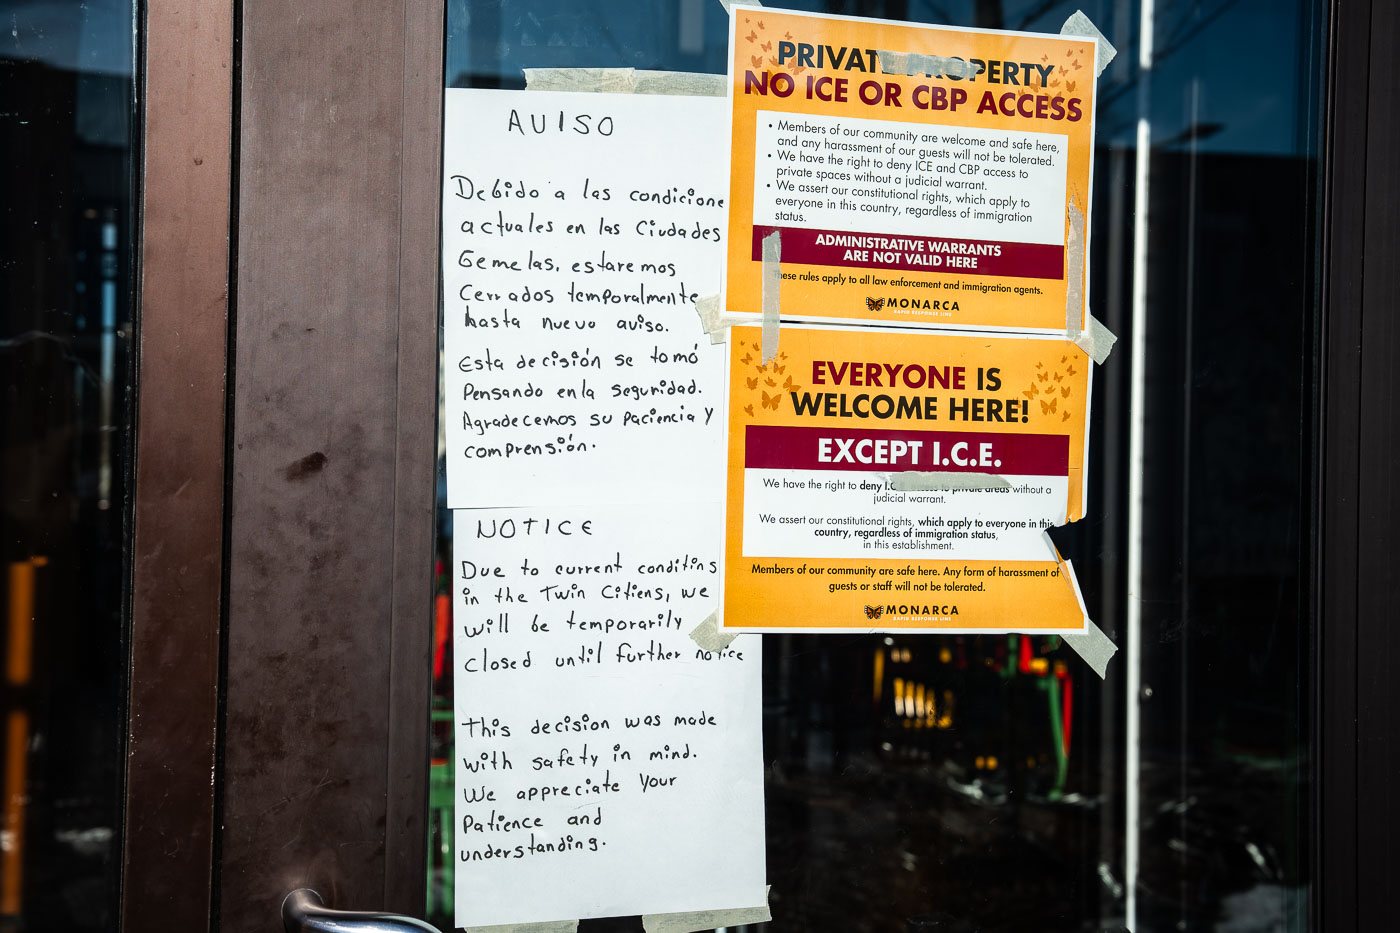 AVISO
Debido a las condicione
actuales en las Ciudades
Gemelas, estaremos
Cerrados temporalmente
hasta nuevo aviso.
Esta decisión se tomó
Pensando en la seguridad.
Agradecemos su paciencia y
comprensión.
NOTICE
Due to current conditins
in the Twin Citiens, we
will be temporarily
closed until further notice
This decision was made
with safety in mind.
We appreciate your
Patience and
understanding.
PRIVATE PROPERTY
NO ICE OR CBP ACCESS
• Members of our community are welcome and safe here,
and any harassment of our guests will not be tolerated.
• We have the right to deny ICE and CBP access to
private spaces without a judicial warrant.
• We assert our constitutional rights, which apply to
everyone in this country, regardless of immigration
status.
ADMINISTRATIVE WARRANTS
ARE NOT VALID HERE
These rules apply to all law enforcement and immigration agents.
MONARCA
RAPID RESPONSE LINE
EVERYONE IS
WELCOME HERE!
EXCEPT I.C.E.
We have the right to deny I.C.E. access to private areas without a
judicial warrant.
We assert our constitutional rights, which apply to everyone in this
country, regardless of immigration status,
in this establishment.
Members of our community are safe here. Any form of harassment of
guests or staff will not be tolerated.
MONARCA
RAPID RESPONSE LINE